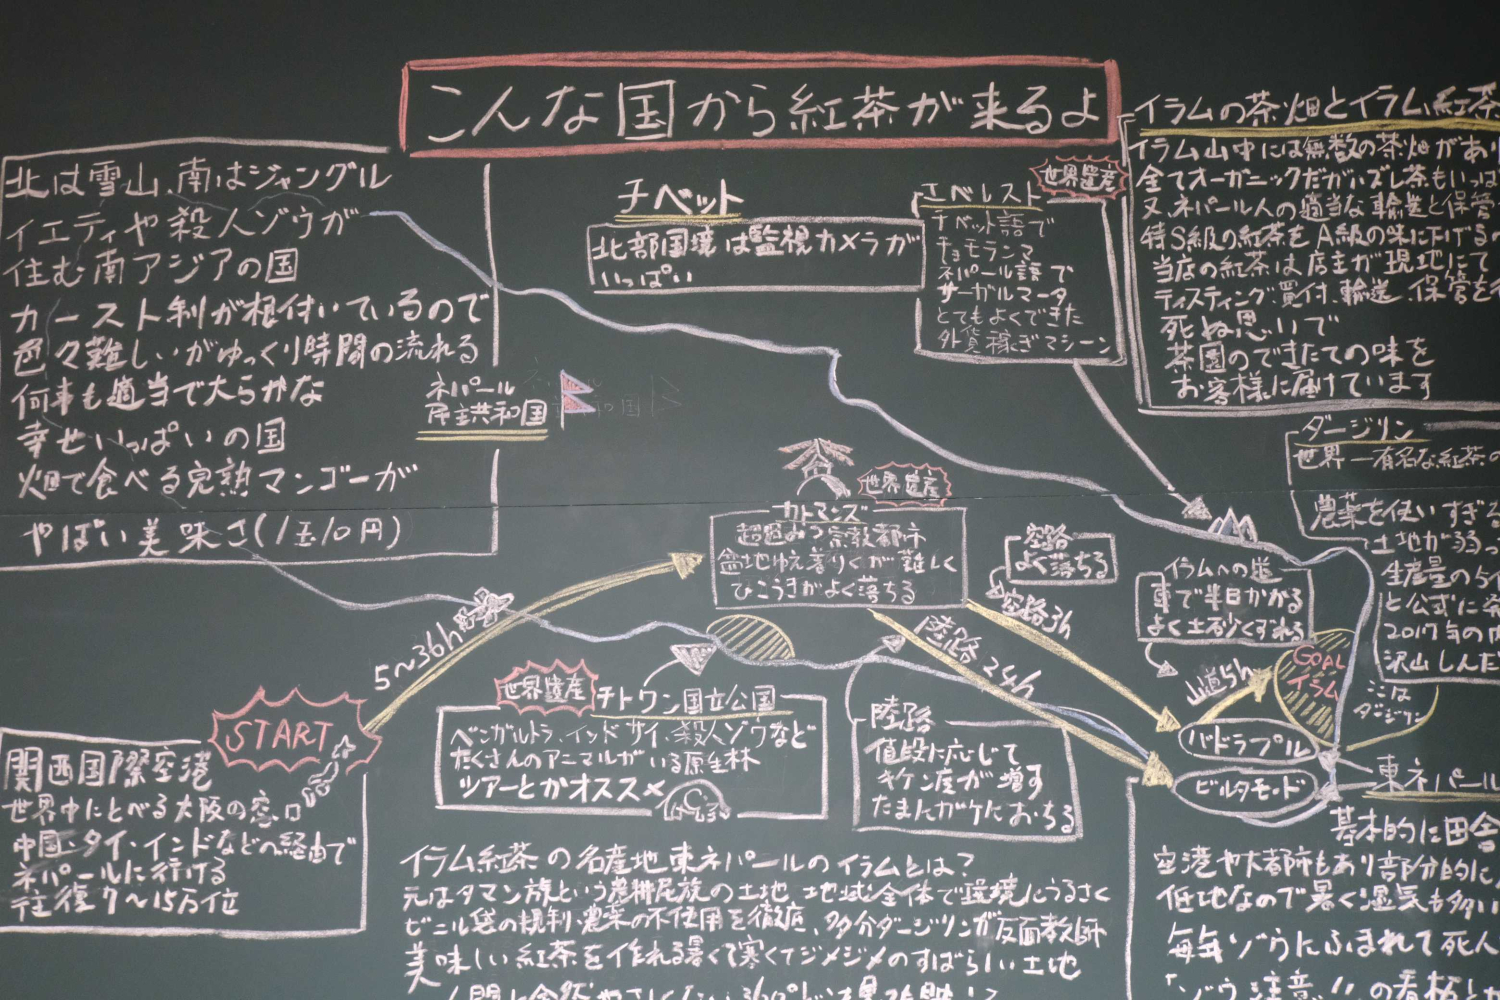 こんな国から紅茶が来るよ
北は雪山、南はジャングル
イエティや殺人ゾウが
住む南アジアの国
カースト制が根付いているので
色々難しいがゆっくり時間の流れる
何事も適当で大らかな
幸せいっぱいの国
畑で食べる完熟マンゴーが
やばい美味さ(1玉10円)
チベット
北部国境は監視カメラが
いっぱい
世界遺産
エベレスト
チベット語で
チョモランマ
ネパール語で
サーガルマータ
とてもよくできた
外貨稼ぎマシーン
イラムの茶畑とイラム紅茶
イラム山中には無数の茶畑があり
全てオーガニックだがハズレ茶もいっぱ
又、ネパール人の適当な輸送と保管
特S級の紅茶をA級の味に下げるの
当店の紅茶は店主が現地にて
ティスティング、買付、輸送、保管を
死ぬ思いで
茶園のできたての味を
お客様に届けています
ネパール
民主共和国
ダージリン
世界一有名な紅茶の
農薬を使いすぎる
土地が弱っ
生産量の5
と公式に茶
2017年の
沢山しんだ
世界遺産
カトマンズ
超超みつ宗教都市
盆地ゆえ着りくが難しく
ひこうきがよく落ちる
空路
よく落ちる
空路3h
イラムへの道
車で半日かかる
よく土砂くずれる
陸路24h
5〜36h
山道5h
GOAL
イラム
ここは
ダージリン
START
関西国際空港
世界中にとべる大阪の窓口
中国・タイ・インドなどへ経由で
ネパールに行ける
往復7〜15万位
世界遺産
チトワン国立公園
ベンガルトラ、インドサイ、殺人ゾウなど
たくさんのアニマルがいる原生林
ツアーとかオススメ
陸路
値段に応じて
キケン度が増す
たまにガケにおちる
バドラプル
ビルタモード
東ネパール
基本的に田舎
空港や大都市もあり部分的に
低地なので暑く湿気も多い
毎年ゾウにふまれて死人
「ゾウ注意!!」の看板
イラム紅茶の名産地、東ネパールのイラムとは?
元はタマン族という農耕尾族の土地、地域全体で環境にうるさく
ビニル袋の規制・農薬の不使用を徹底、多分ダージリンが反面教師
美味しい紅茶を作れる暑くて寒くてジメジメのすばらしい土地